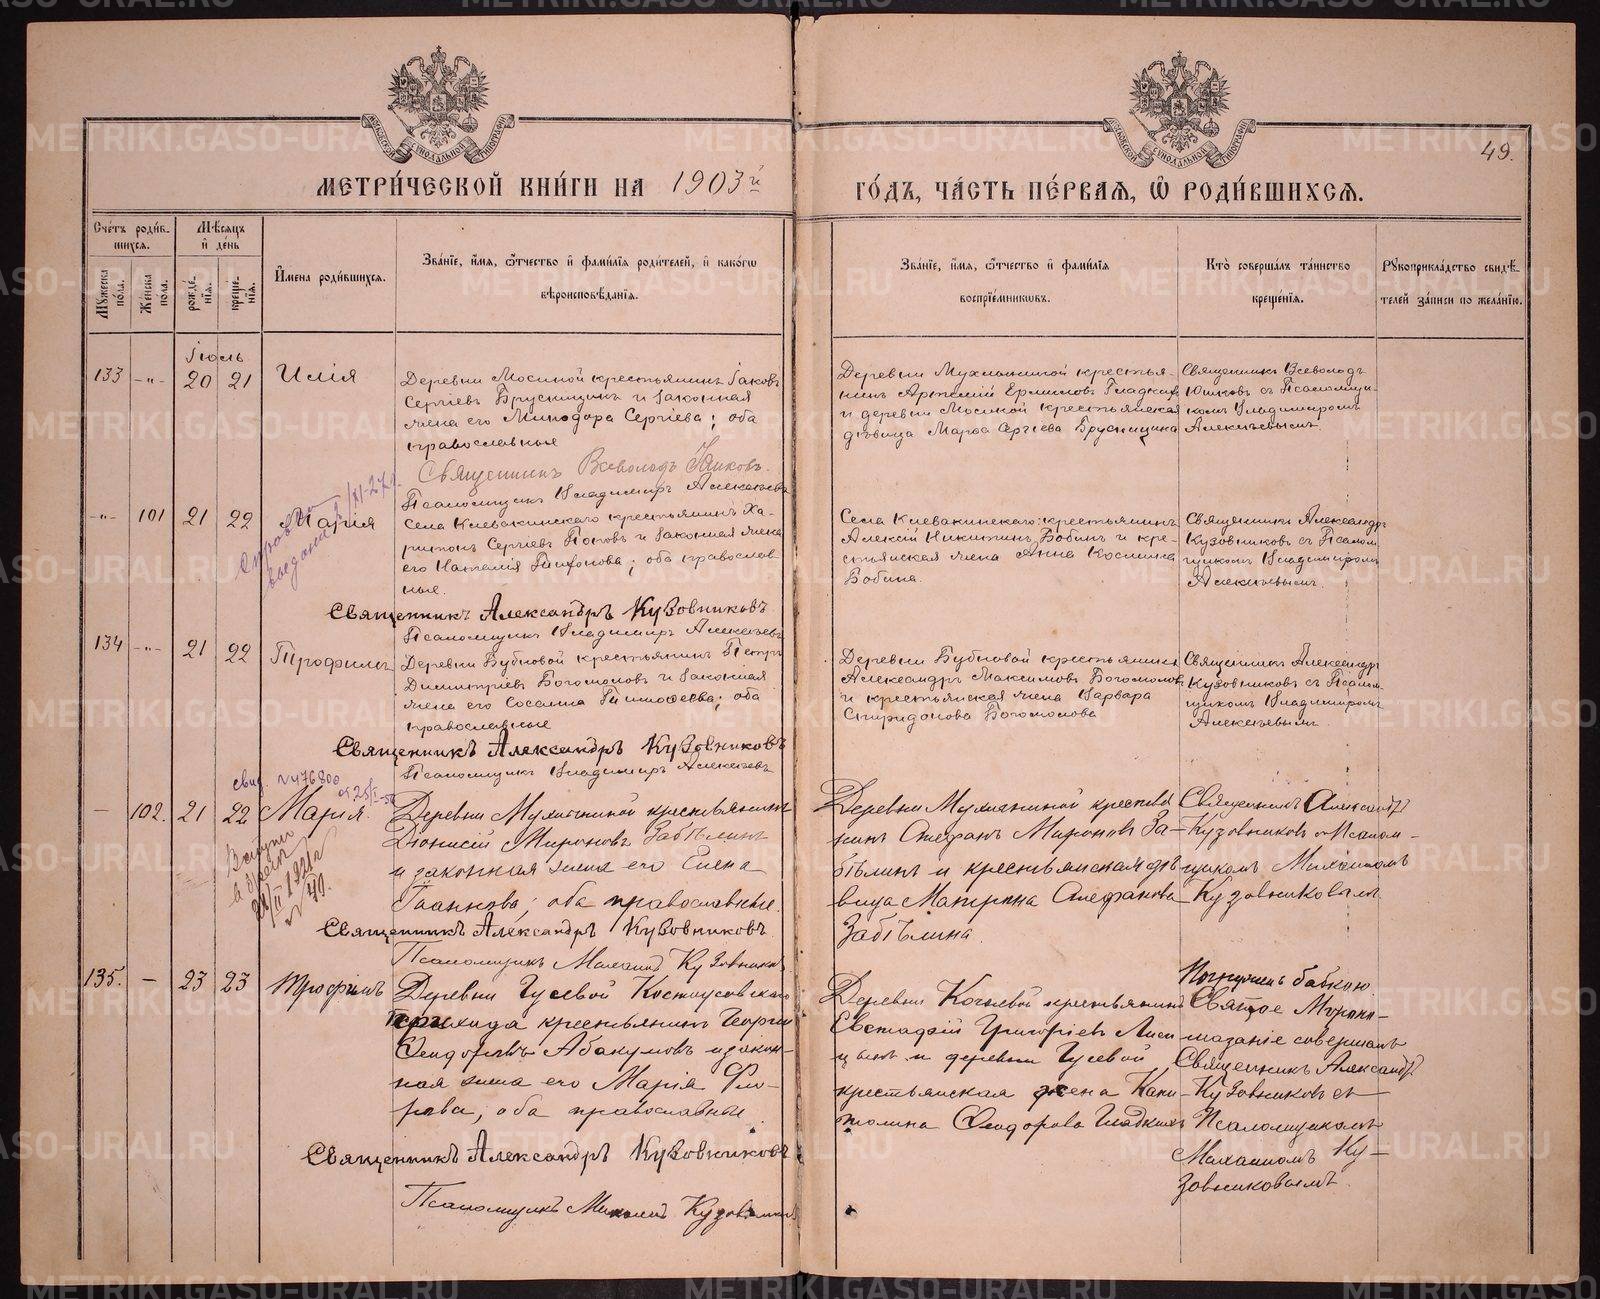 МЕТРИ́ЧЕСКОЙ КНИ́ГИ НА 1903й
ГО́ДЪ, ЧА́СТЬ ПЕ́РВАЯ, Ѡ РОДИ́ВШИХСЯ.
49.
Сче́тъ роди́в-
шихся.
Мѣ́сяцъ
и де́нь
Мꙋ́жеска по́ла.
Же́нска по́ла.
рожде́-
нїя.
креще́-
нїя.
И́мена роди́вшихся.
Зва́нїе, и́мя, ѻ҆́тчество и фами́лїя роди́телей, и како́гѡ
вѣроисповѣ́данїя.
Зва́нїе, и́мя, ѻ҆́тчество и фами́лїя
воспрїе́мникѡвъ.
Кто̀ соверша́лъ та́инство
креще́нїя.
Рꙋкоприкла́дство свидѣ́-
телей за́писи по жела́нїю.
Іюль
133 -"- 20 21 Илія
Деревни Мосиной крестьянинъ Іаковъ
Сергіевъ Брусницынъ и законная
жена его Минодора Сергіева; оба
православные
Священникъ Всеволодъ
Псаломщикъ Владимиръ Алексѣевъ
Деревни крестья-
нинъ Артемій Ермиловъ Гладких
и деревни Мосиной крестьянская
дѣвица Марѳа Сергіева Брусницина
Священникъ Всеволодъ
съ Псаломщи-
комъ Владимиромъ
Алексѣевымъ.
-"- 101 21 22 Марія
Справка
выдана
Села Клевакинскаго крестьянинъ Ха-
ритонъ Сергіевъ Поповъ и законная жена
его Наталія Тихонова; оба православ-
ные.
Священникъ Александръ Кузовниковъ
Псаломщикъ Владимиръ Алексѣевъ
Села Клевакинскаго: крестьянинъ
Алексій Никитинъ Бобинъ и кре-
стьянская жена Анна Космина
Бобина.
Священникъ Александръ
Кузовниковъ съ Псалом-
щикомъ Владимиромъ
Алексѣевымъ.
134 -"- 21 22 Трофимъ
Деревни Бубновой крестьянинъ Петръ
Димитріевъ Богомоловъ и законная
жена его Сосанна Тимоѳеева; оба
православные
Священникъ Александръ Кузовниковъ
Псаломщикъ Владимиръ Алексѣевъ
Деревни Бубновой крестьянинъ
Александръ Максимовъ Богомоловъ
и крестьянская жена Варвара
Спиридонова Богомолова
Священникъ Александръ
Кузовниковъ съ Псалом-
щикомъ Владимиромъ
Алексѣевымъ.
свид. №476800
— 102. 21 22 Марія.
Деревни крестьянинъ
Діонисій Мироновъ Забѣлинъ
и законная жена его Елена
Іоаннова; оба православные.
Священникъ Александръ Кузовниковъ.
Псаломщикъ Михаилъ Кузовниковъ
Деревни крестья-
нинъ Стефанъ Мироновъ За-
бѣлинъ и крестьянская дѣ-
вица Матрона Стефанова
Забѣлина.
Священникъ Александръ
Кузовниковъ с Псалом-
щикомъ Михаиломъ
Кузовниковымъ.
Вступи
в бракъ
135. — 23 23 Трофимъ
Деревни Гусевой Костоусовскаго
прихода крестьянинъ Георгій
Ѳеодоровъ Абакумовъ и закон-
ная жена его Марія Фло-
рова, оба православные.
Священникъ Александръ Кузовниковъ
Псаломщикъ Михаилъ Кузовниковъ
Деревни крестьянинъ
Евстафій Григоріевъ Лиси-
цынъ и деревни Гусевой
крестьянская жена Капи-
толина Ѳеодорова Гладкихъ
Погруженъ бабкою
Святое Мѵропо-
мазаніе совершалъ
Священникъ Александръ
Кузовниковъ съ
Псаломщикомъ
Михаиломъ Ку-
зовниковымъ.